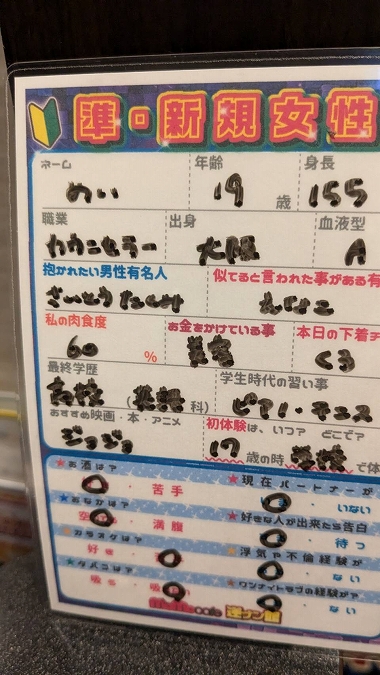 準・新規女性
ネーム 年齢 身長
めい 19 歳 155
職業 出身 血液型
大阪 A
抱かれたい男性有名人 似てると言われた事がある有
さいとうたくみ
私の肉食度 お金をかけている事 本日の下着
60 % 美容 くろ
最終学歴 学生時代の習い事
高校 ( 科) ピアノ・テニス
おすすめ映画・本・アニメ 初体験は、いつ? どこで?
ジョジョ 17 歳の時 で
★お酒は? ★現在パートナーが
苦手 いない
★おなかは? ★好きな人が出来たら告白
満腹 待つ
★カラオケは? ★浮気や不倫経験が
好き ない
★タバコは? ★ワンナイトラブの経験が?
吸う ない
cafe